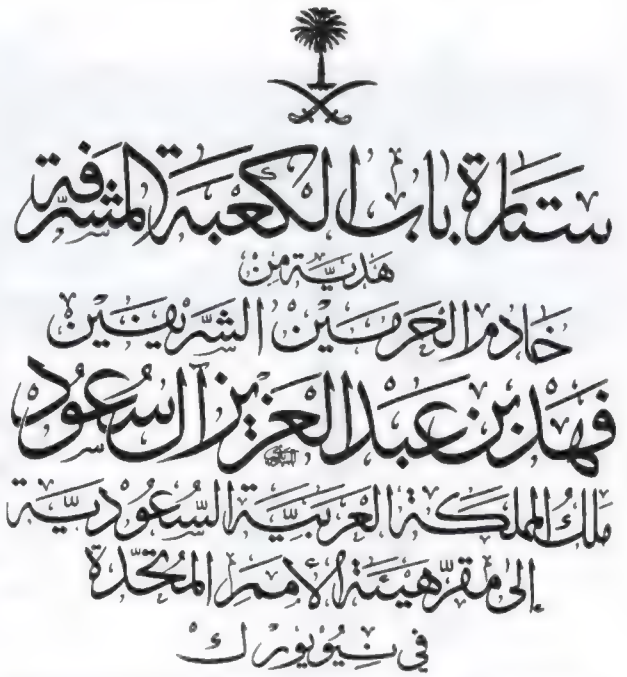 ستارة باب الكعبة المشرفة
هَديَّة مِن
خَادم الحَرمَين الشَّريفَين
فَهْد بن عَبد العَزيز آل سُعُود
مَلكُ المملكَة العَربيَّة السُّعُوديَّة
إلى مَقرّ هَيئَة الأمَم المتُحَّدة
في نيُويُورك